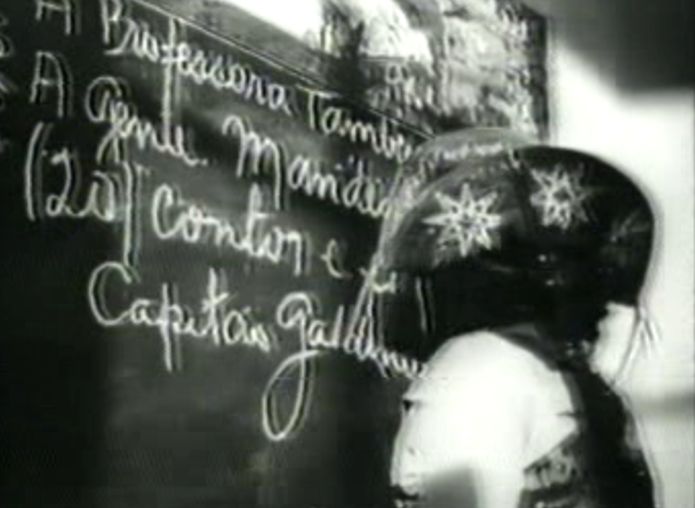 A Professora Tambe
A gente. Mande
(20) contos e
Capitão Galdino